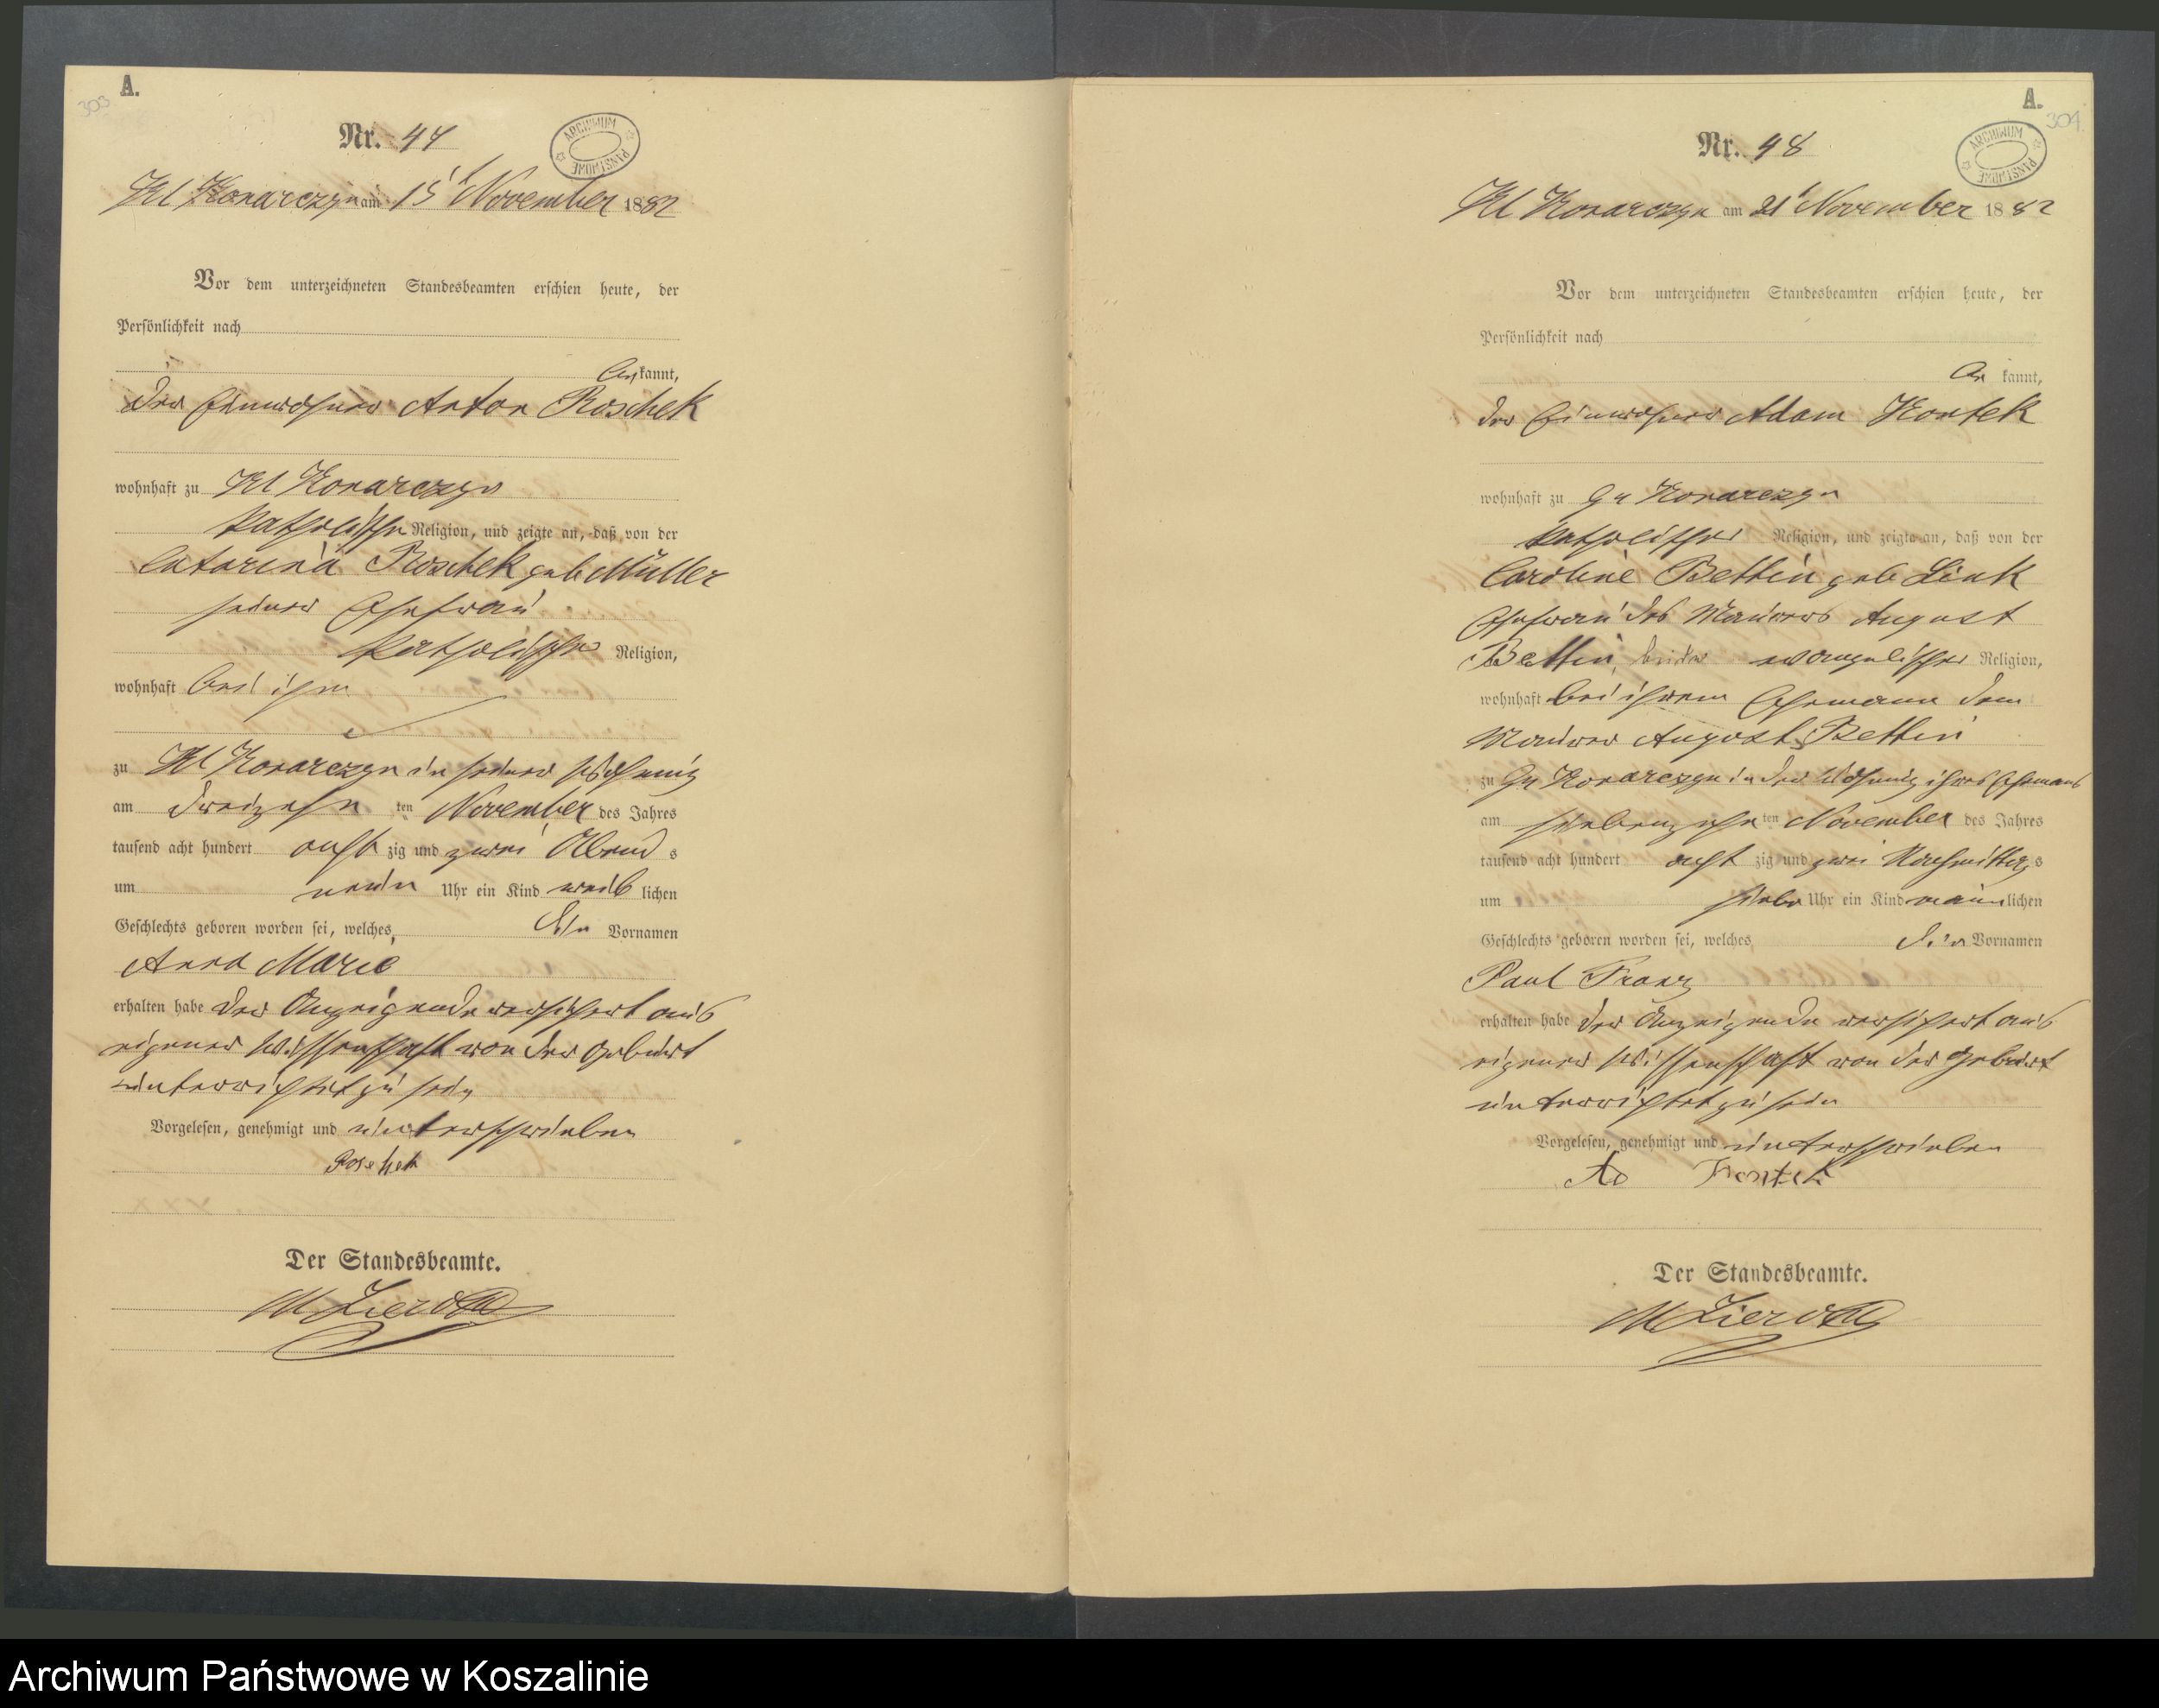 303
A.
Nr. 47
ARCHIWUM PAŃSTWOWE
Kl Konarczyn am 15t November 1882
Vor dem unterzeichneten Standesbeamten erschien heute, der
Persönlichkeit nach
be kannt,
der Einwohner Anton Roschek
wohnhaft zu Kl Konarczyn
katholischer Religion, und zeigte an, daß von der
Catarina Roschek geb Müller
seiner Ehefrau
katholischer Religion,
wohnhaft bei ihm
zu Kl Konarczyn in seiner Wohnung
am dreizehn ten November des Jahres
tausend acht hundert acht zig und zwei Abend s
um neun Uhr ein Kind weib lichen
Geschlechts geboren worden sei, welches, die Vornamen
Anna Marie
erhalten habe der Anzeigende versichert aus
eigener Wissenschaft von der Geburt
unterrichtet zu sein
Vorgelesen, genehmigt und unterschrieben
Roschek
Der Standesbeamte.
A.
304
Nr. 48
ARCHIWUM PAŃSTWOWE
Kl Konarczyn am 21t November 1882
Vor dem unterzeichneten Standesbeamten erschien heute, der
Persönlichkeit nach
be kannt,
der Einwohner Adam Kontek
wohnhaft zu Gr Konarczyn
katholischer Religion, und zeigte an, daß von der
Caroline Bettin geb Link
Ehefrau des Maurers August
Bettin, beide evangelischer Religion,
wohnhaft bei ihrem Ehemann dem
Maurer August Bettin
zu Gr Konarczyn in der Wohnung ihres Ehemans
am siebenzehn ten November des Jahres
tausend acht hundert acht zig und zwei Nachmittag s
um Uhr ein Kind männ lichen
Geschlechts geboren worden sei, welches die Vornamen
Paul Franz
erhalten habe der Anzeigende versichert aus
eigener Wissenschaft von der Geburt
unterrichtet zu sein
Vorgelesen, genehmigt und unterschrieben
Ad Kontek
Der Standesbeamte.
Archiwum Państwowe w Koszalinie